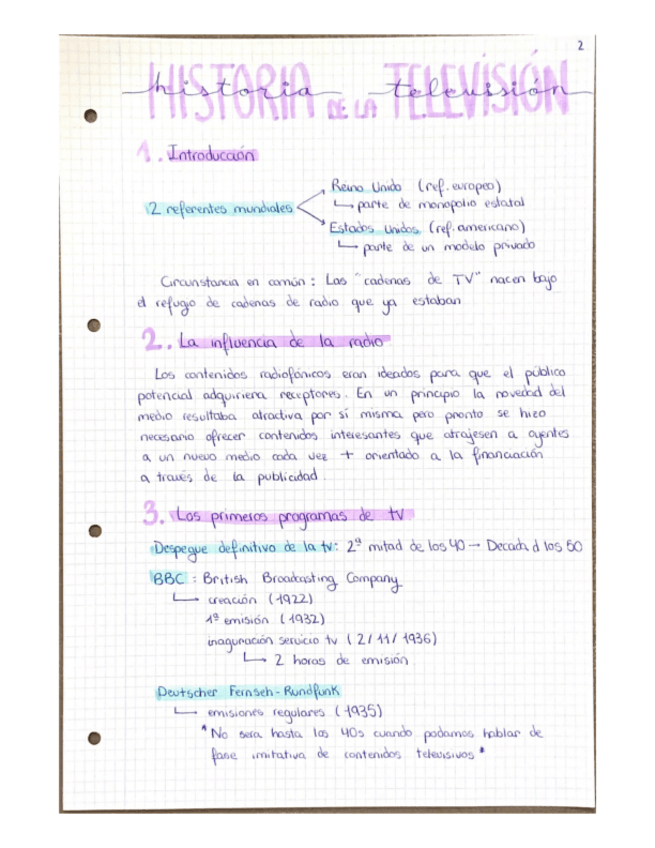 2
HISTORIA DE LA TELEVISIÓN
historia televisión
1. Introducción
2 referentes mundiales
Reino Unido (ref. europeo)
↳ parte de monopolio estatal
Estados Unidos (ref. americano)
↳ parte de un modelo privado
Circunstancia en común: Las "cadenas de TV" nacen bajo
el refugio de cadenas de radio que ya estaban
2. La influencia de la radio
Los contenidos radiofónicos eran ideados para que el público
potencial adquiriera receptores. En un principio la novedad del
medio resultaba atractiva por sí misma pero pronto se hizo
necesario ofrecer contenidos interesantes que atrajesen a oyentes
a un nuevo medio cada vez + orientado a la financiación
a través de la publicidad.
3. Los primeros programas de tv
Despegue definitivo de la tv: 2ª mitad de los 40 → Decada d los 50
BBC: British Broadcasting Company
↳ creación (1922)
1ª emisión (1932)
inaguración servicio tv (2/11/1936)
↳ 2 horas de emisión
Deutscher Fernseh-Rundfunk
↳ emisiones regulares (1935)
*No sera hasta los 40s cuando podamos hablar de
fase imitativa de contenidos televisivos*